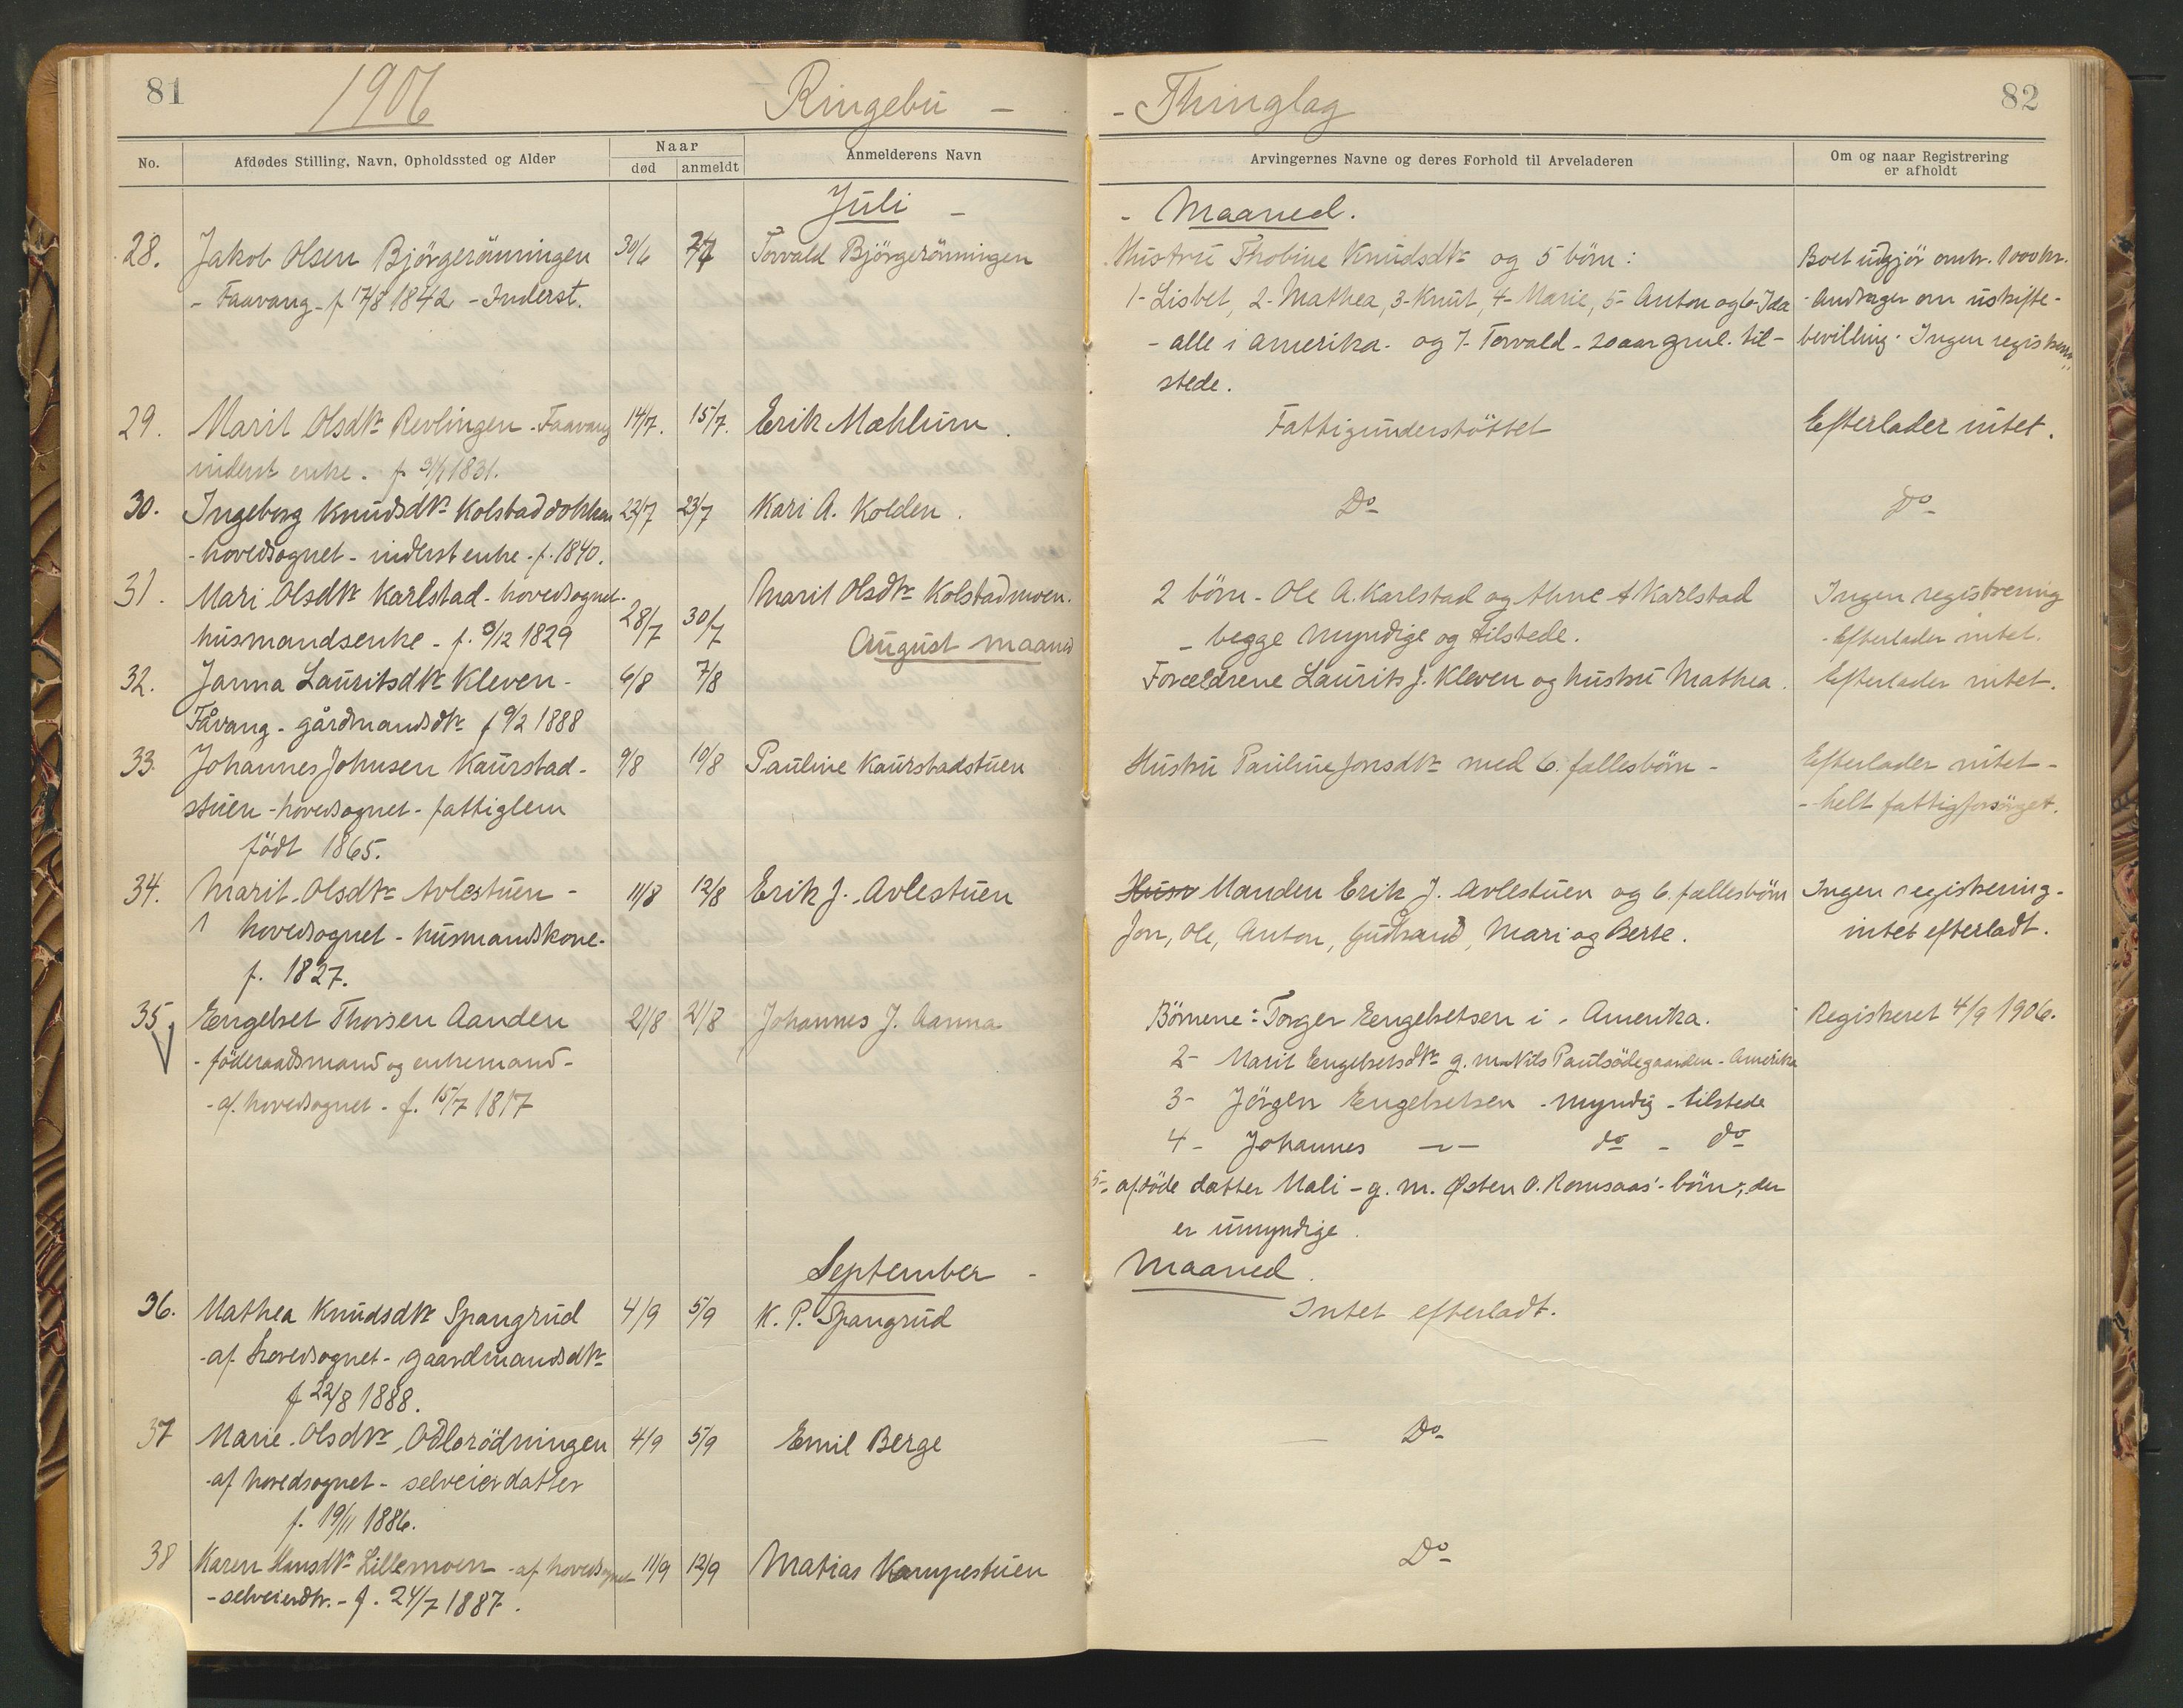 81
1906
Ringebu -
- Thinglag
82
No.
Afdødes Stilling, Navn, Opholdssted og Alder
Naar
død
anmeldt
Anmelderens Navn
Arvingernes Navne og deres Forhold til Arveladeren
Om og naar Registrering
er afholdt
Juli -
- Maaned.
28.
Jakob Olsen Bjørgerønningen
- Faavang - f 17/8 1842 - Inderst.
30/6
7/7
Torvald Bjørgerønningen
Hustru Thobine Knudsdtr og 5 børn:
1- Lisbet, 2- Mathea, 3- Knut, 4- Marie, 5- Anton og 6- Ida
- alle i Amerika - og 7- Torvald - 20 aar gml. til-
stede.
Boet udgjør omtr. 1000 kr.
- Andrager om uskifte-
bevilling. Ingen
29.
Marit Olsdtr Revlingen - Faavang
inderst enke. f. 3/1 1831.
14/7.
15/7.
Erik Mæhlum.
Fattigunderstøttet
Efterlader intet.
30.
Ingeborg Knudsdtr
- hovedsognet - inderst enke - f. 1840.
22/7
23/7
Kari A. Kolden.
Do
Do
31.
Mari Olsdtr Karlstad - hovedsognet -
husmandsenke - f. /12 1829
28/7
30/7
Marit Olsdtr Kolstadmoen.
2 børn - Ole A. Karlstad og Anne A Karlstad
- begge myndige og tilstede.
Ingen registrering
- Efterlader intet.
August maaned
32.
Janna Lauritsdtr Kleven -
Fåvang - gårdmandsdtr f 9/2 1888
6/8
7/8
Forældrene Laurits J. Kleven og hustru Mathea.
Efterlader intet.
33.
Johannes Johnsen Kaurstad-
stuen - hovedsognet - fattiglem
født 1865.
9/8
10/8
Pauline Kaurstadstuen
Hustru Pauline Jonsdtr med 6. fællesbørn -
Efterlader intet -
- helt fattigforsørget.
34.
Marit Olsdtr Avlestuen -
hovedsognet - husmandskone -
f. 1827.
11/8
12/8
Erik J. Avlestuen
Manden Erik J. Avlestuen og 6. fællesbørn
Jon, Ole, Anton, Gudbrand, Mari og Berte.
Ingen registrering -
intet efterladt.
35
Engelset Thorsen Aanden
- føderaadsmand og enkemand -
- af hovedsognet - f. 15/7 1817
21/8
21/8
Johannes J. Aanna
Børnene: Torger Engelsetsen i - Amerika.
2- Marit Engelsetsdtr g.m. Nils Paulsødegaarden - Amerika
3- Jørgen Engelsetsen - myndig - tilstede
4- Johannes -"- do - do
5- afdøde datter Mali - g. m. Østen O. Romsaas' - børn, der
er umyndige.
Registreret 4/9 1906.
September -
Maaned.
36.
Mathea Knudsdtr Spangrud
- af hovedsognet - gaardmandsdtr
f 22/8 1888.
4/9
5/9
K. P. Spangrud
Intet efterladt.
37
Marie Olsdtr Odlorødningen
- af hovedsognet - selveierdatter
f. 19/11 1886.
4/9
5/9
Emil Berge
Do
38
Karen Hansdtr Lillemoen - af hovedsognet
- selveierdtr. - f. 24/7 1887.
11/9
12/9
Matias Kampestuen
Do